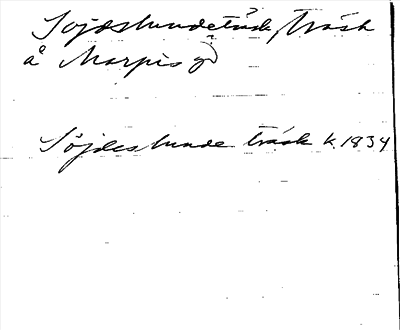 Sojdeslundeträsk, träsk
å Norpis gd
Söjdeslunde träsk k. 1834